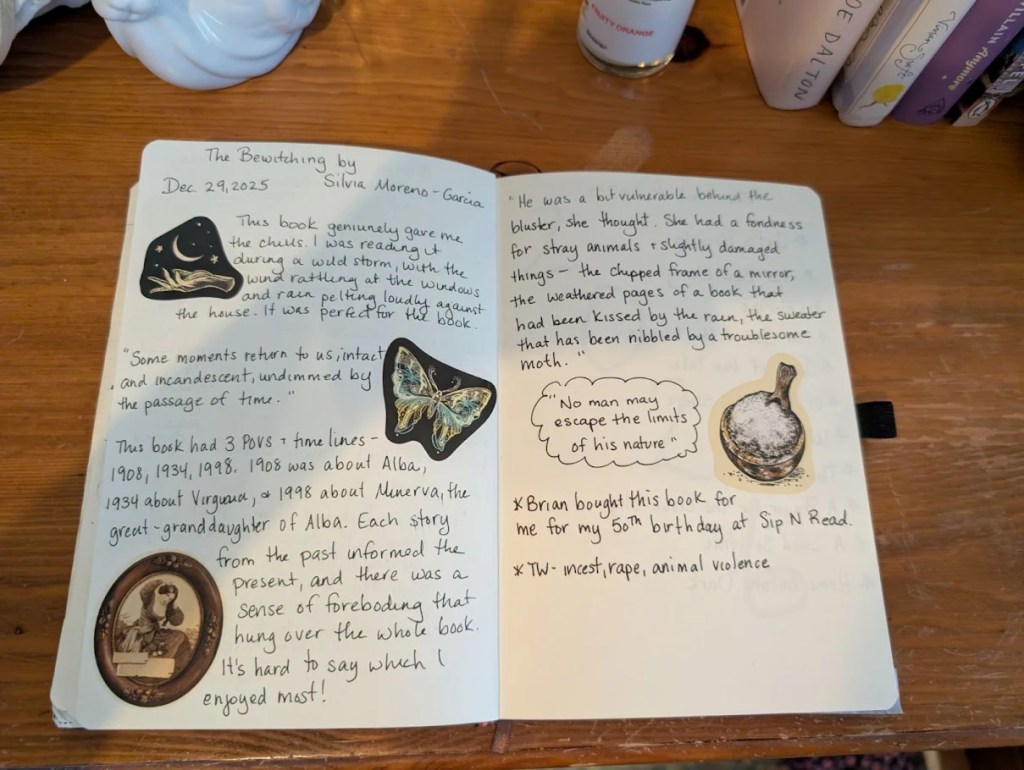 FRUITY ORANGE
DE DALTON
VILLAIN Anymore
The Bewitching by
Dec 29, 2025 Silvia Moreno-Garcia
This book geniunely gave me
the chills. I was reading it
during a wild storm, with the
wind rattling at the windows
and rain pelting loudly against
the house. It was perfect for the book.
"Some moments return to us, intact
and incandescent, undimmed by
the passage of time."
This book had 3 POVs + timelines -
1908, 1934, 1998. 1908 was about Alba,
1934 about Virginia, & 1998 about Minerva, the
great-granddaughter of Alba. Each story
from the past informed the
present, and there was a
sense of foreboding that
hung over the whole book.
It's hard to say which I
enjoyed most!
"He was a bit vulnerable behind the
bluster, she thought. She had a fondness
for stray animals + slightly damaged
things - the chipped frame of a mirror,
the weathered pages of a book that
had been kissed by the rain, the sweater
that has been nibbled by a troublesome
moth."
"No man may
escape the limits
of his nature"
* Brian bought this book for
me for my 50th birthday at Sip N Read.
* TW - incest, rape, animal violence